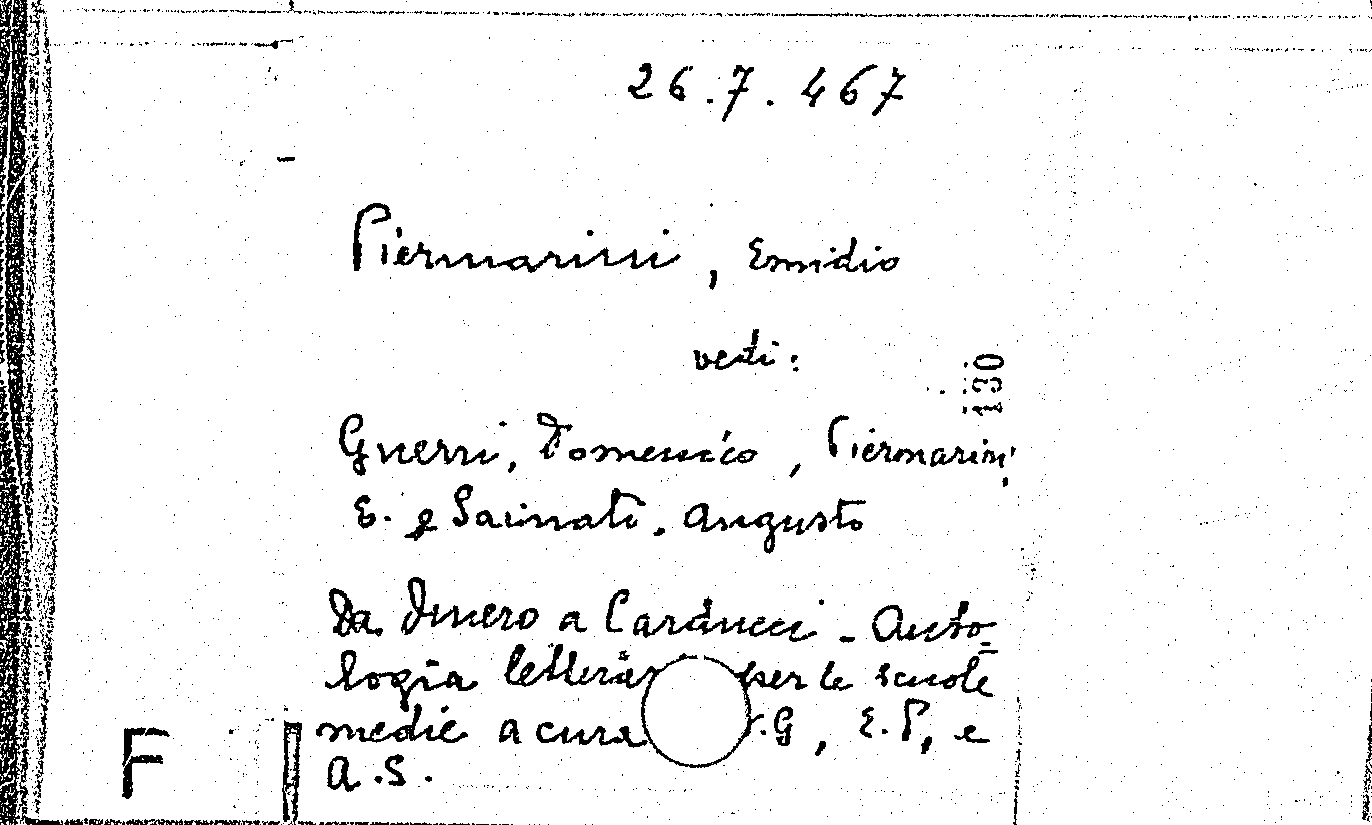 26.7.467
Piermarini, Emidio
vedi:
130
Guerri, Domenico, Piermarini,
E. e Sainati, Augusto
Da Omero a Carducci - Anto-
logia letterar per le scuole
medie a cura .G, E.P, e
A.S.
F